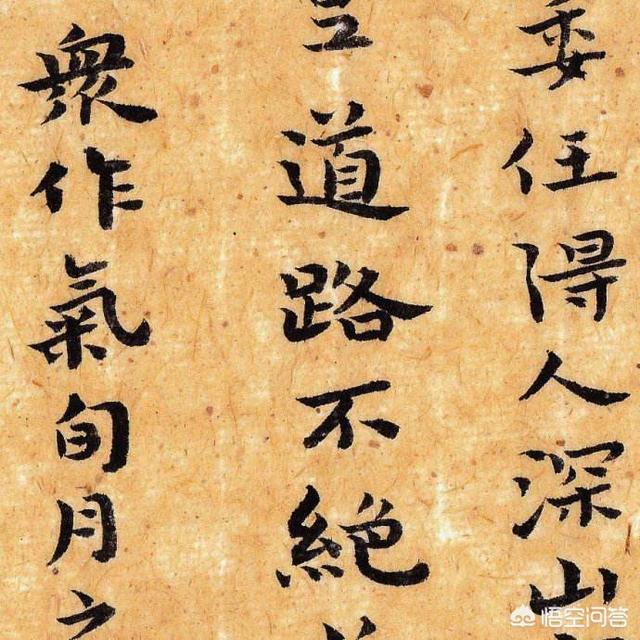 委任得人深山
道路不絕
衆作氣旬月之
悟空问答